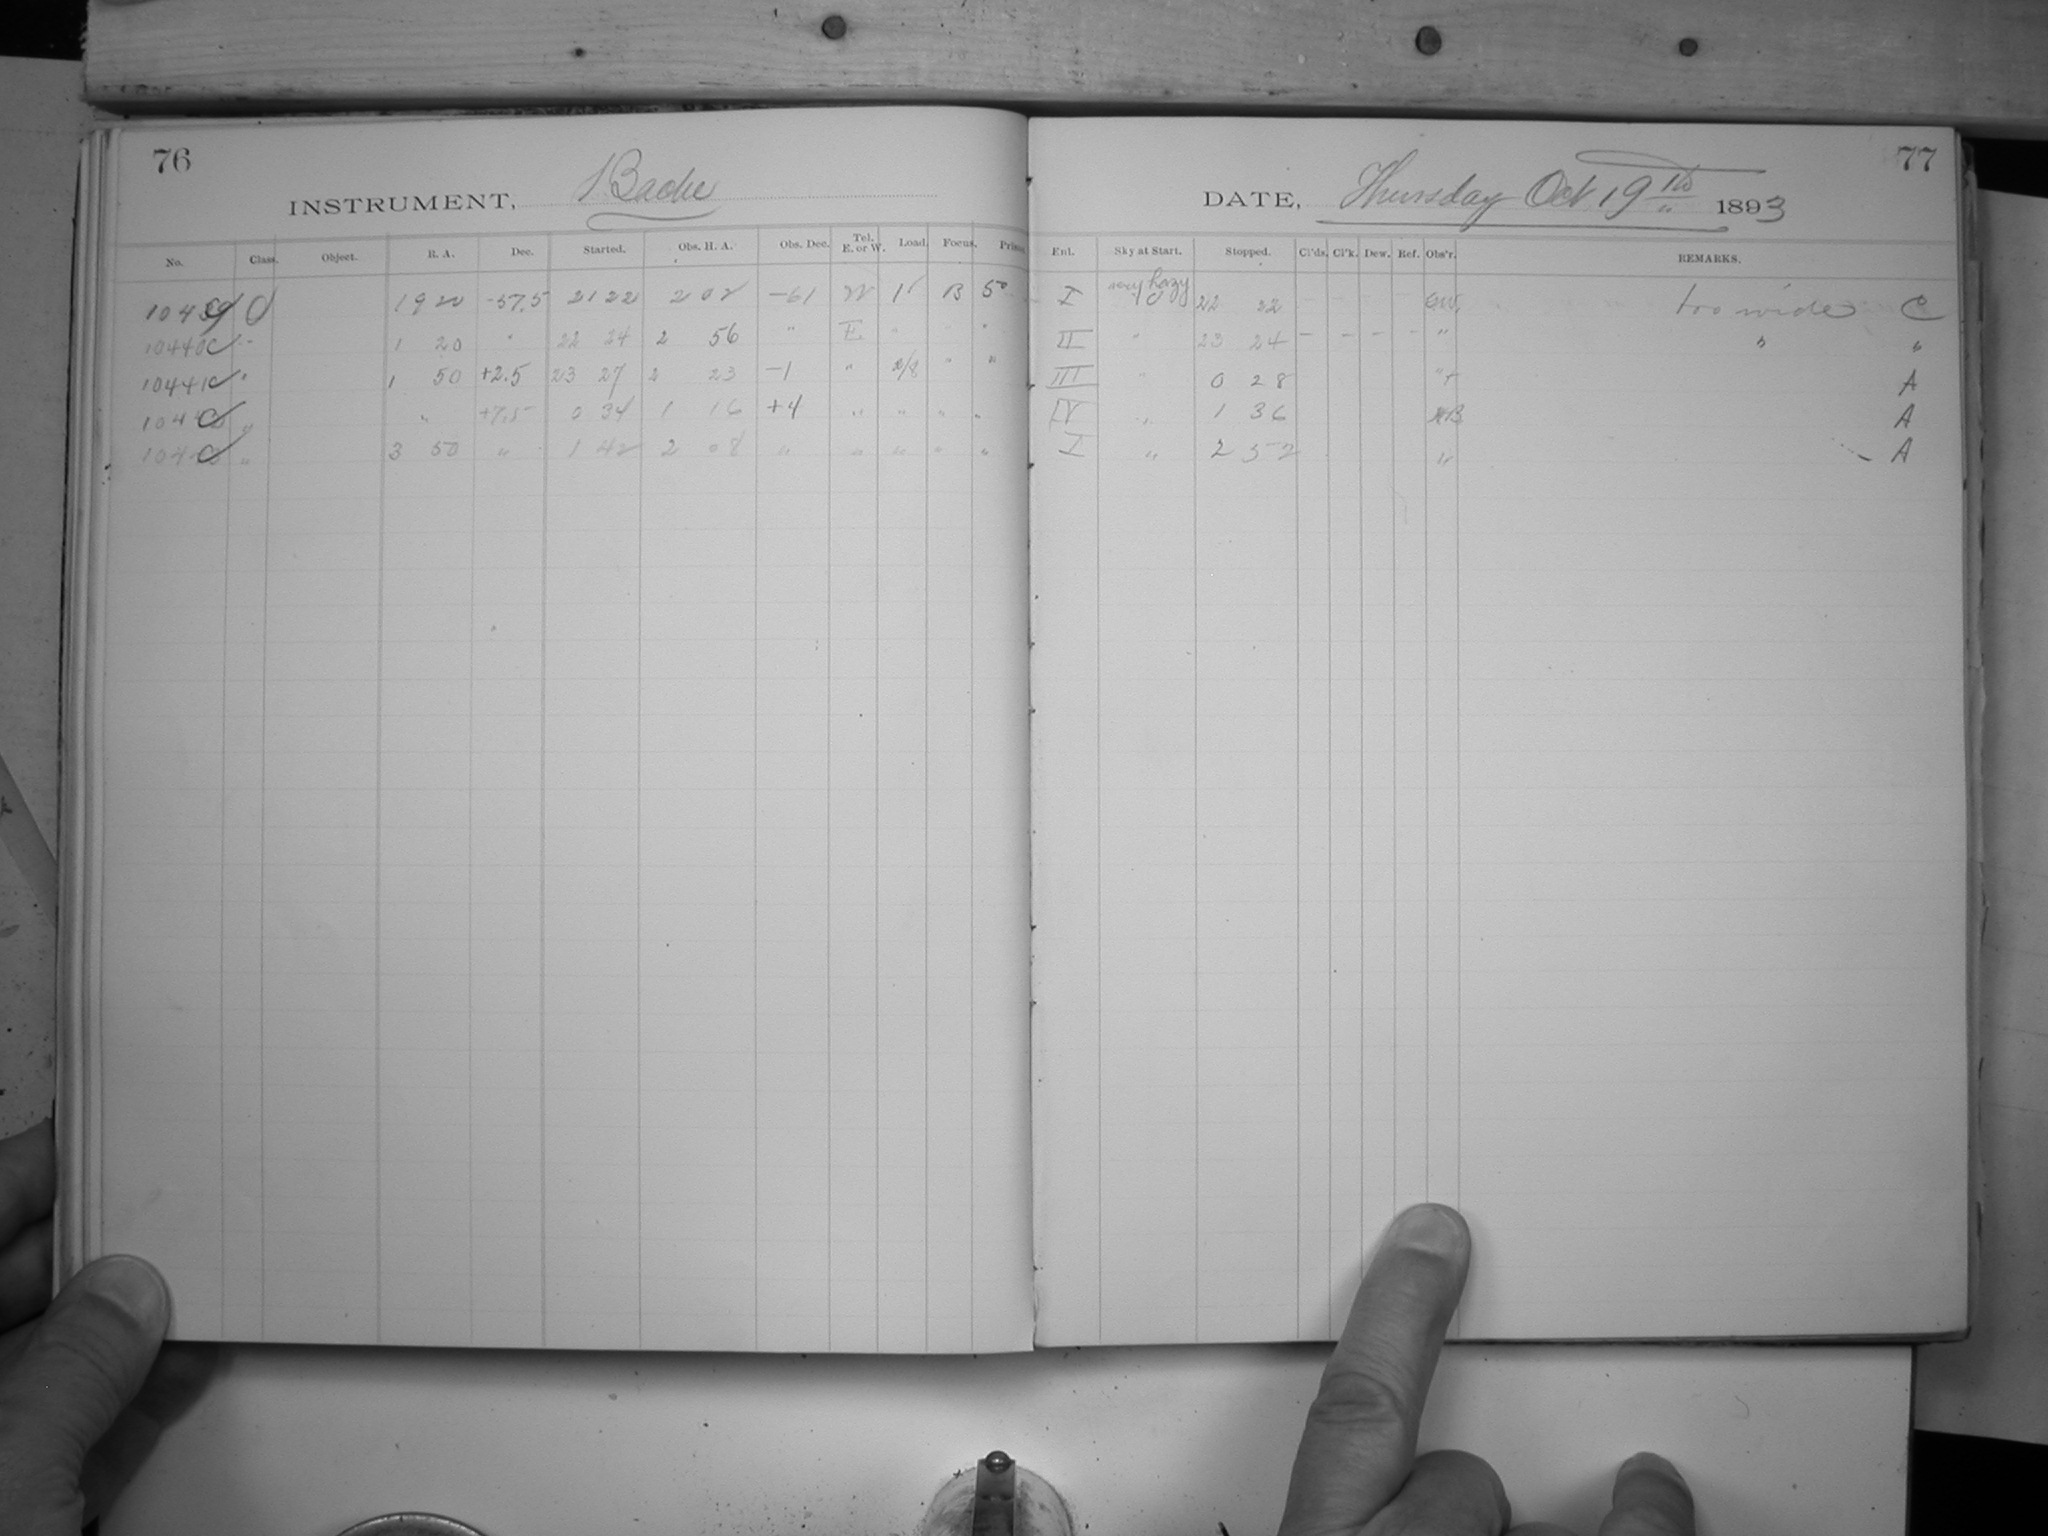 76
INSTRUMENT, Bache
No. Class. Object. R. A. Dec. Started. Obs. H. A. Obs. Dec. Tel. E. or W. Load. Focus.
10439 O 19 20 -57.5 21 22 2 02 -61 W B 50
10440 " 1 20 " 22 24 2 56 " E " "
10441 " 1 50 +2.5 23 27 2 23 -1 " " "
" " +7.5 0 34 1 16 +4 " " " "
" 3 50 " 1 42 2 08 " " " " "
77
DATE, Thursday Oct 19th 1893
Enl. Sky at Start. Stopped. Cl'ds. Cl'k. Dew. Ref. Obs'r. REMARKS.
I very hazy 22 22 too wide C
II " 23 24 - - - - " " "
III " 0 28 A
IV " 1 36 A
I " 2 52 " A